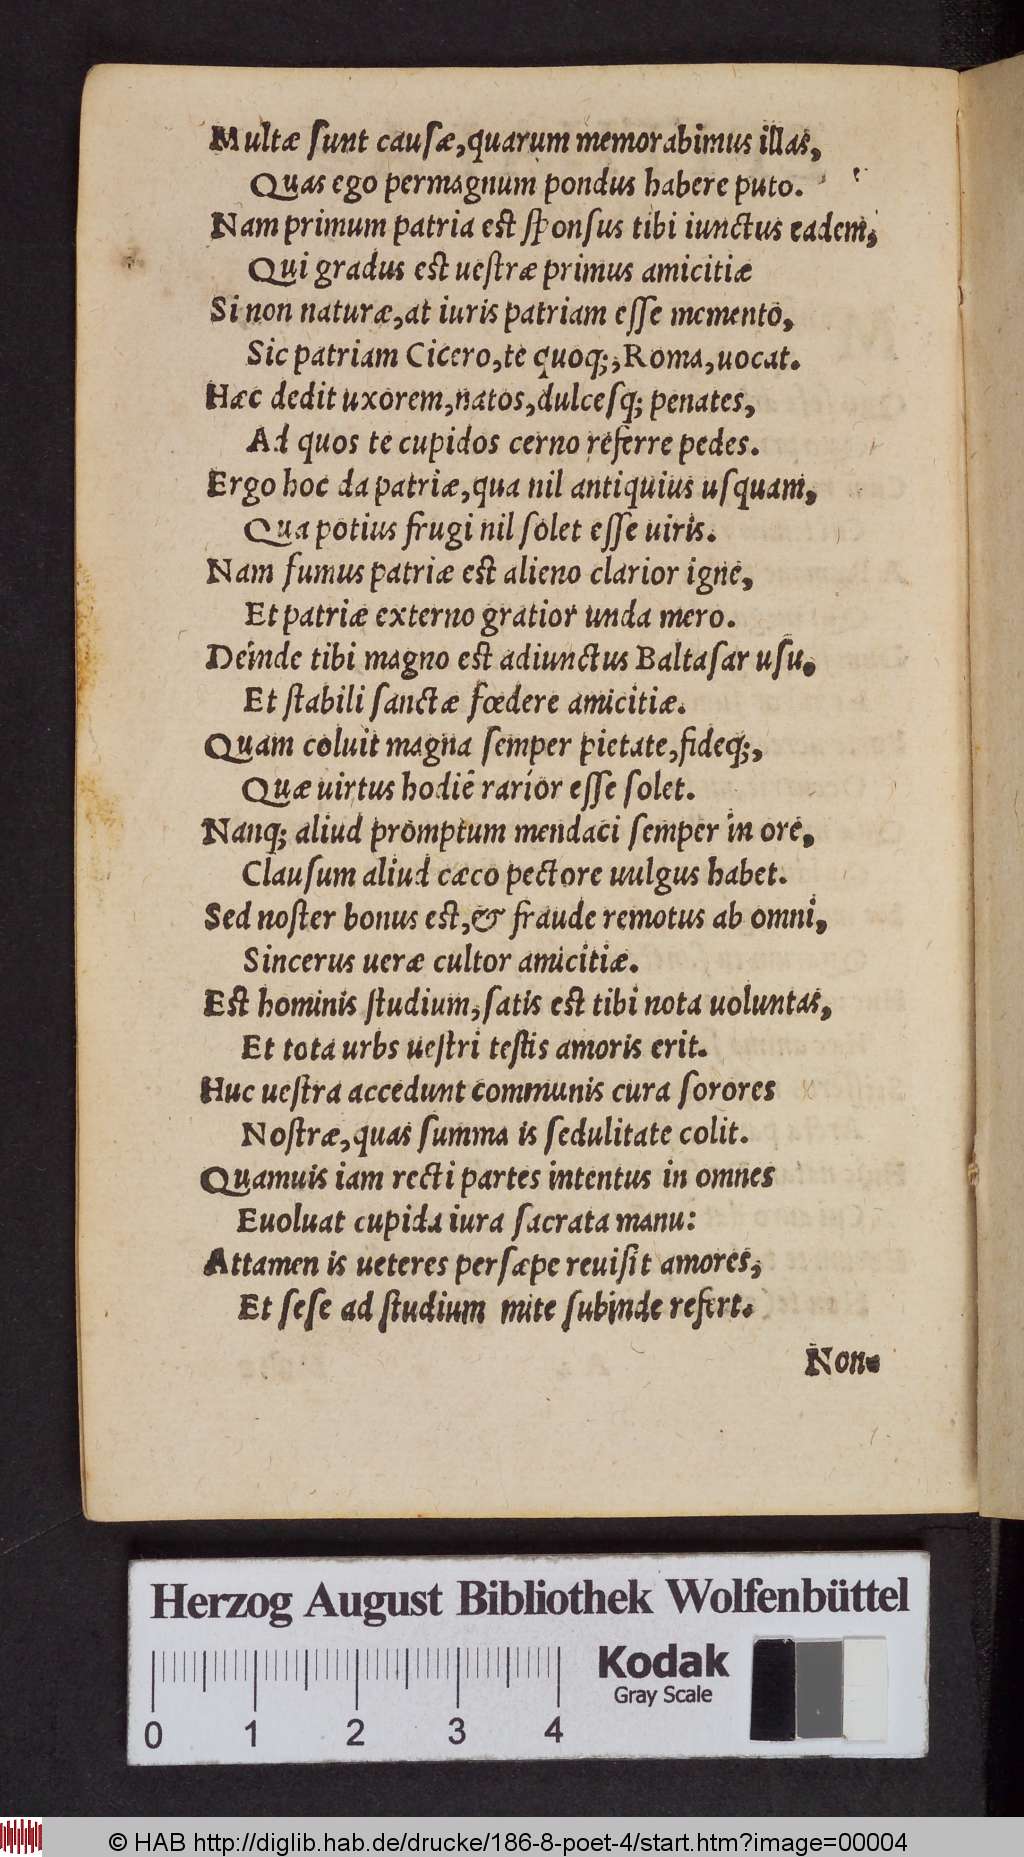 Multæ ſunt cauſæ,quarum memorabimus illas,
Quas ego permagnum pondus habere puto.
Nam primum patria est ſponſus tibi iunctus eadem,
Qui gradus est ueſtræ primus amicitiæ
Si non naturæ,at iuris patriam eſſe memento,
Sic patriam Cicero,te quoq;,Roma,uocat.
Hæc dedit uxorem,natos,dulceſq; penates,
Ad quos te cupidos cerno referre pedes.
Ergo hoc da patriæ,qua nil antiquius uſquam,
Qua potius frugi nil ſolet eſſe uiris.
Nam fumus patriæ est alieno clarior igne,
Et patriæ externo gratior unda mero.
Deinde tibi magno est adiunctus Baltaſar uſu.
Et ſtabili ſanctæ fœdere amicitiæ.
Quam coluit magna ſemper pietate,fideq;,
Quæ uirtus hodiè rarior eſſe ſolet.
Nanq; aliud promptum mendaci ſemper in ore,
Clauſum aliud cæco pectore uulgus habet.
Sed noſter bonus est,& fraude remotus ab omni,
Sincerus ueræ cultor amicitiæ.
Est hominis ſtudium,ſatis est tibi nota uoluntas,
Et tota urbs ueſtri teſtis amoris erit.
Huc ueſtra accedunt communis cura ſorores
Noſtræ,quas ſumma is ſedulitate colit.
Quamuis iam recti partes intentus in omnes
Euoluat cupida iura ſacrata manu:
Attamen is ueteres perſæpe reuiſit amores,
Et ſeſe ad ſtudium mite ſubinde refert.
Non-
Herzog August Bibliothek Wolfenbüttel
Kodak
Gray Scale
0 1 2 3 4
© HAB http://diglib.hab.de/drucke/186-8-poet-4/start.htm?image=00004